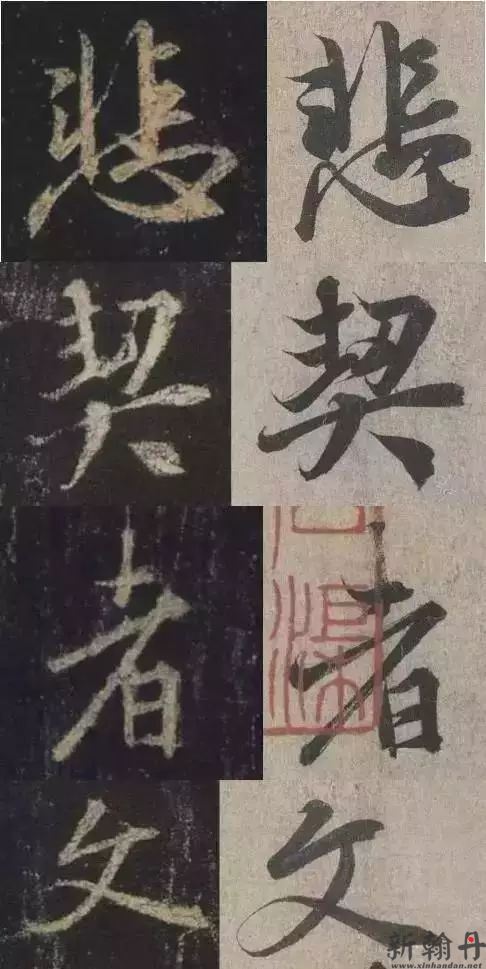 悲 悲
契 契
者 者
文 文
新翰丹
www.xinhandan.net